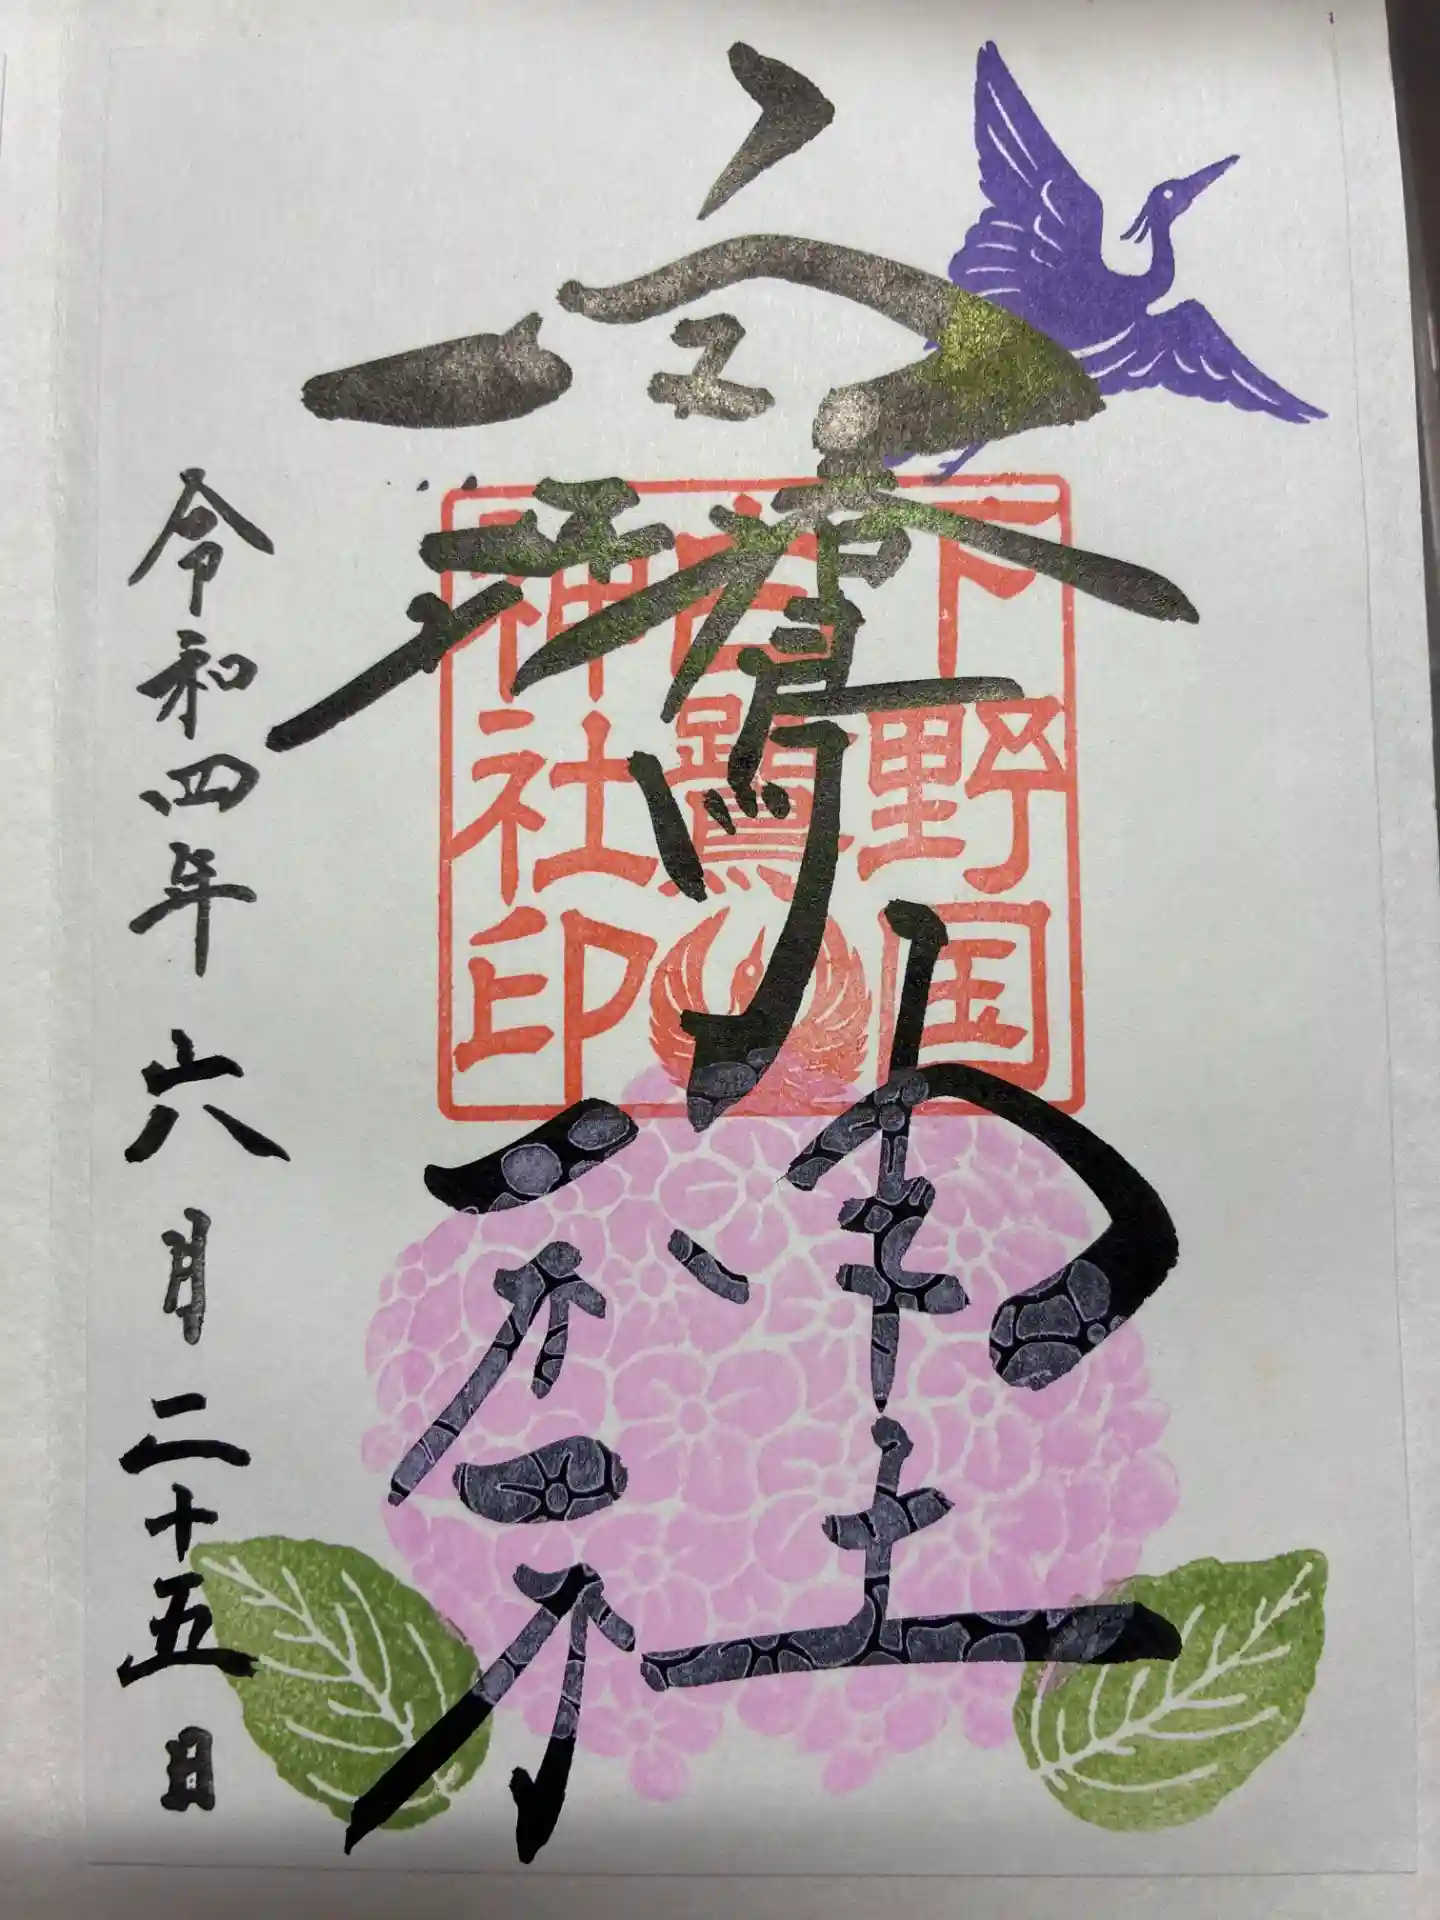 白鷺神社
下野国
白鷺
神社印
令和四年六月二十五日